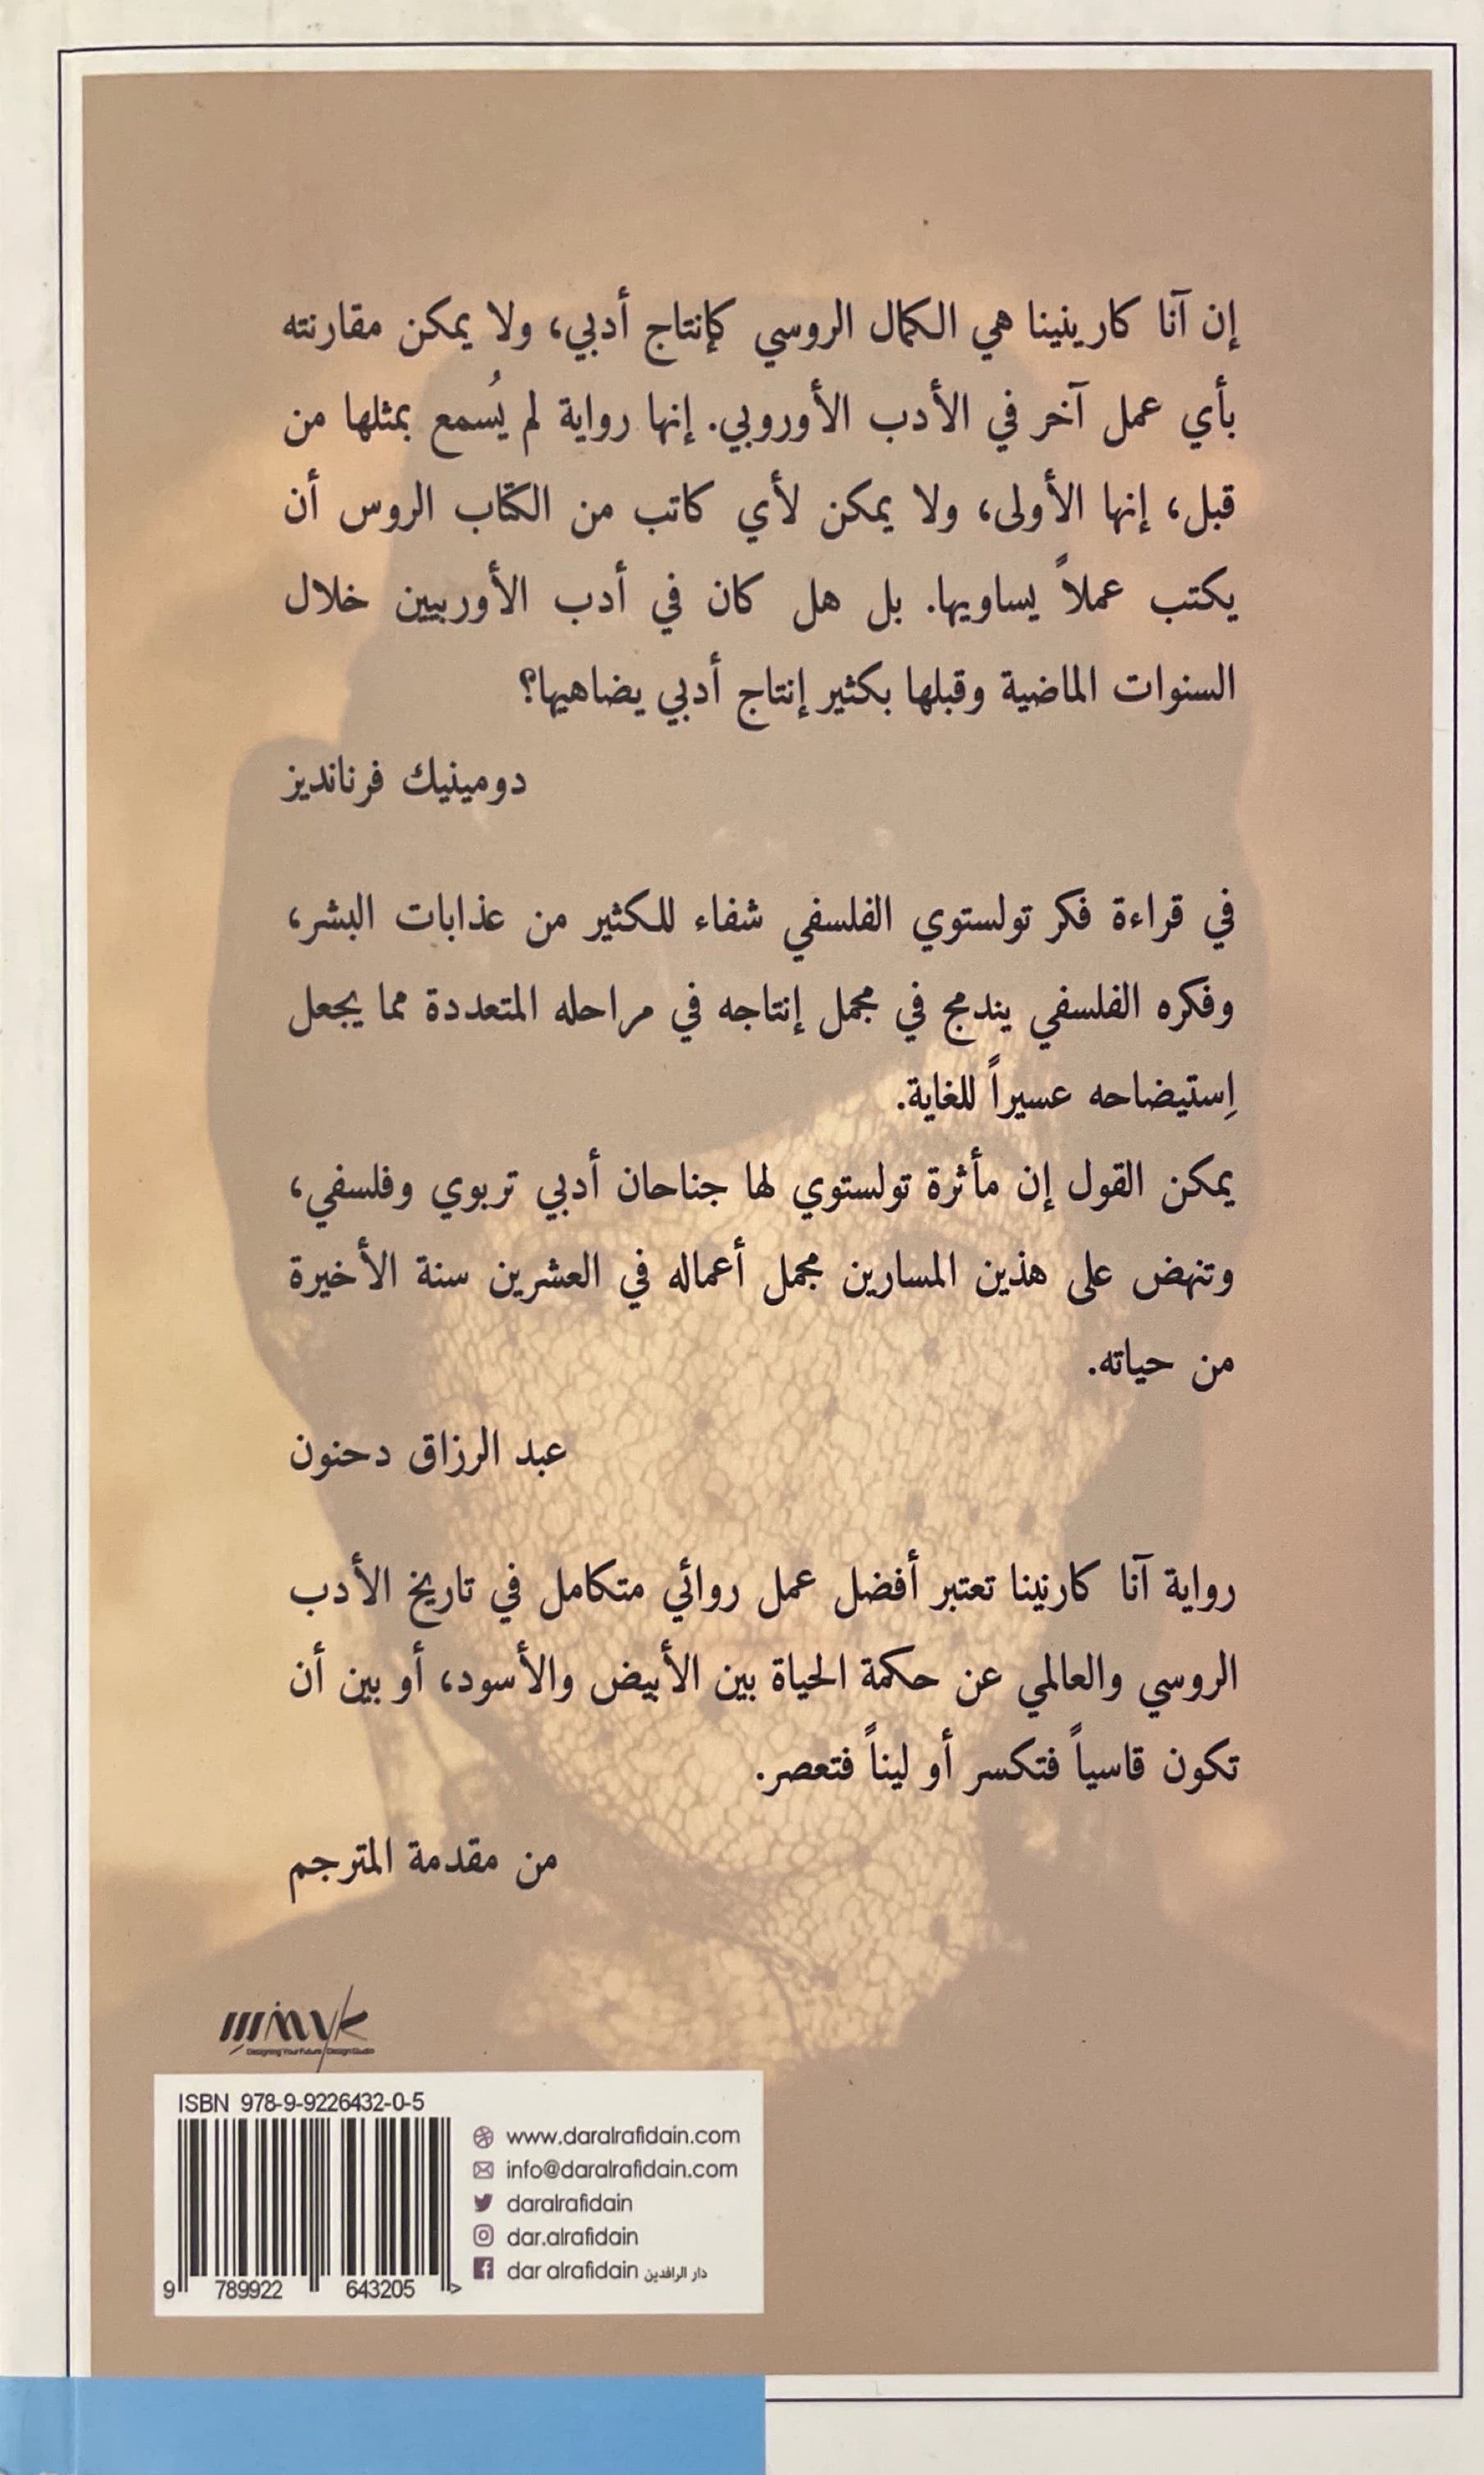 إن آنا كارينينا هي الكمال الروسي كإنتاج أدبي، ولا يمكن مقارنته
بأي عمل آخر في الأدب الأوروبي. إنها رواية لم يُسمع بمثلها من
قبل، إنها الأولى، ولا يمكن لأي كاتب من الكتّاب الروس أن
يكتب عملاً يساويها. بل هل كان في أدب الأوربيين خلال
السنوات الماضية وقبلها بكثير إنتاج أدبي يضاهيها؟
دومينيك فرنانديز
في قراءة فكر تولستوي الفلسفي شفاء للكثير من عذابات البشر،
وفكره الفلسفي يندمج في مجمل إنتاجه في مراحله المتعددة مما يجعل
إستيضاحه عسيراً للغاية.
يمكن القول إن مأثرة تولستوي لها جناحان أدبي تربوي وفلسفي،
وتنهض على هذين المسارين مجمل أعماله في العشرين سنة الأخيرة
من حياته.
عبد الرزاق دحنون
رواية آنا كارنينا تعتبر أفضل عمل روائي متكامل في تاريخ الأدب
الروسي والعالمي عن حكمة الحياة بين الأبيض والأسود، أو بين أن
تكون قاسياً فتكسر أو ليناً فتعصر.
من مقدمة المترجم
Designing Your Future / Design Studio
ISBN 978-9-9226432-0-5
9 789922 643205 >
www.daralrafidain.com
info@daralrafidain.com
daralrafidain
dar.alrafidain
dar alrafidain دار الرافدين